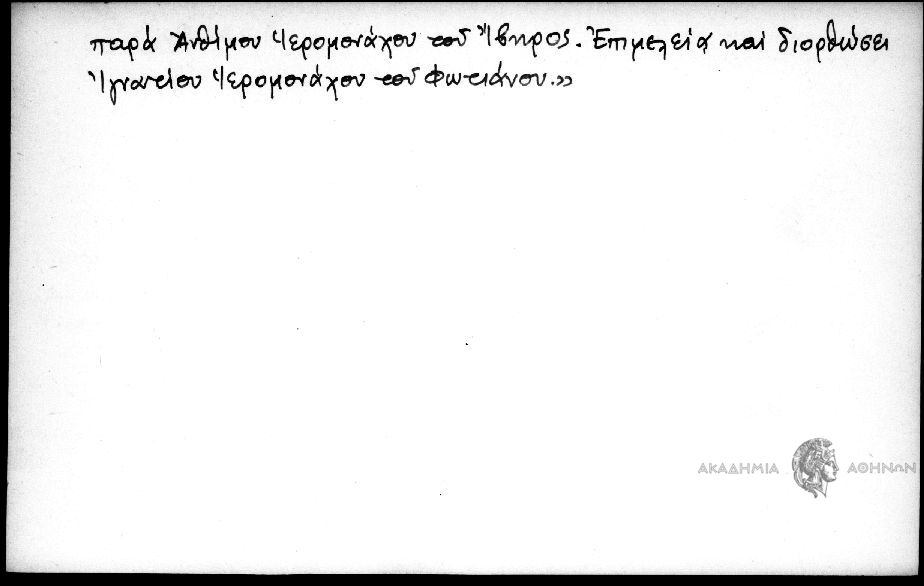 παρά Ἀνθίμου Ἱερομονάχου τοῦ Ἴβηρος. Ἐπιμελείᾳ καί διορθώσει
Ἰγνατίου Ἱερομονάχου τοῦ Φωτιάνου.»
ΑΚΑΔΗΜΙΑ ΑΘΗΝΩΝ